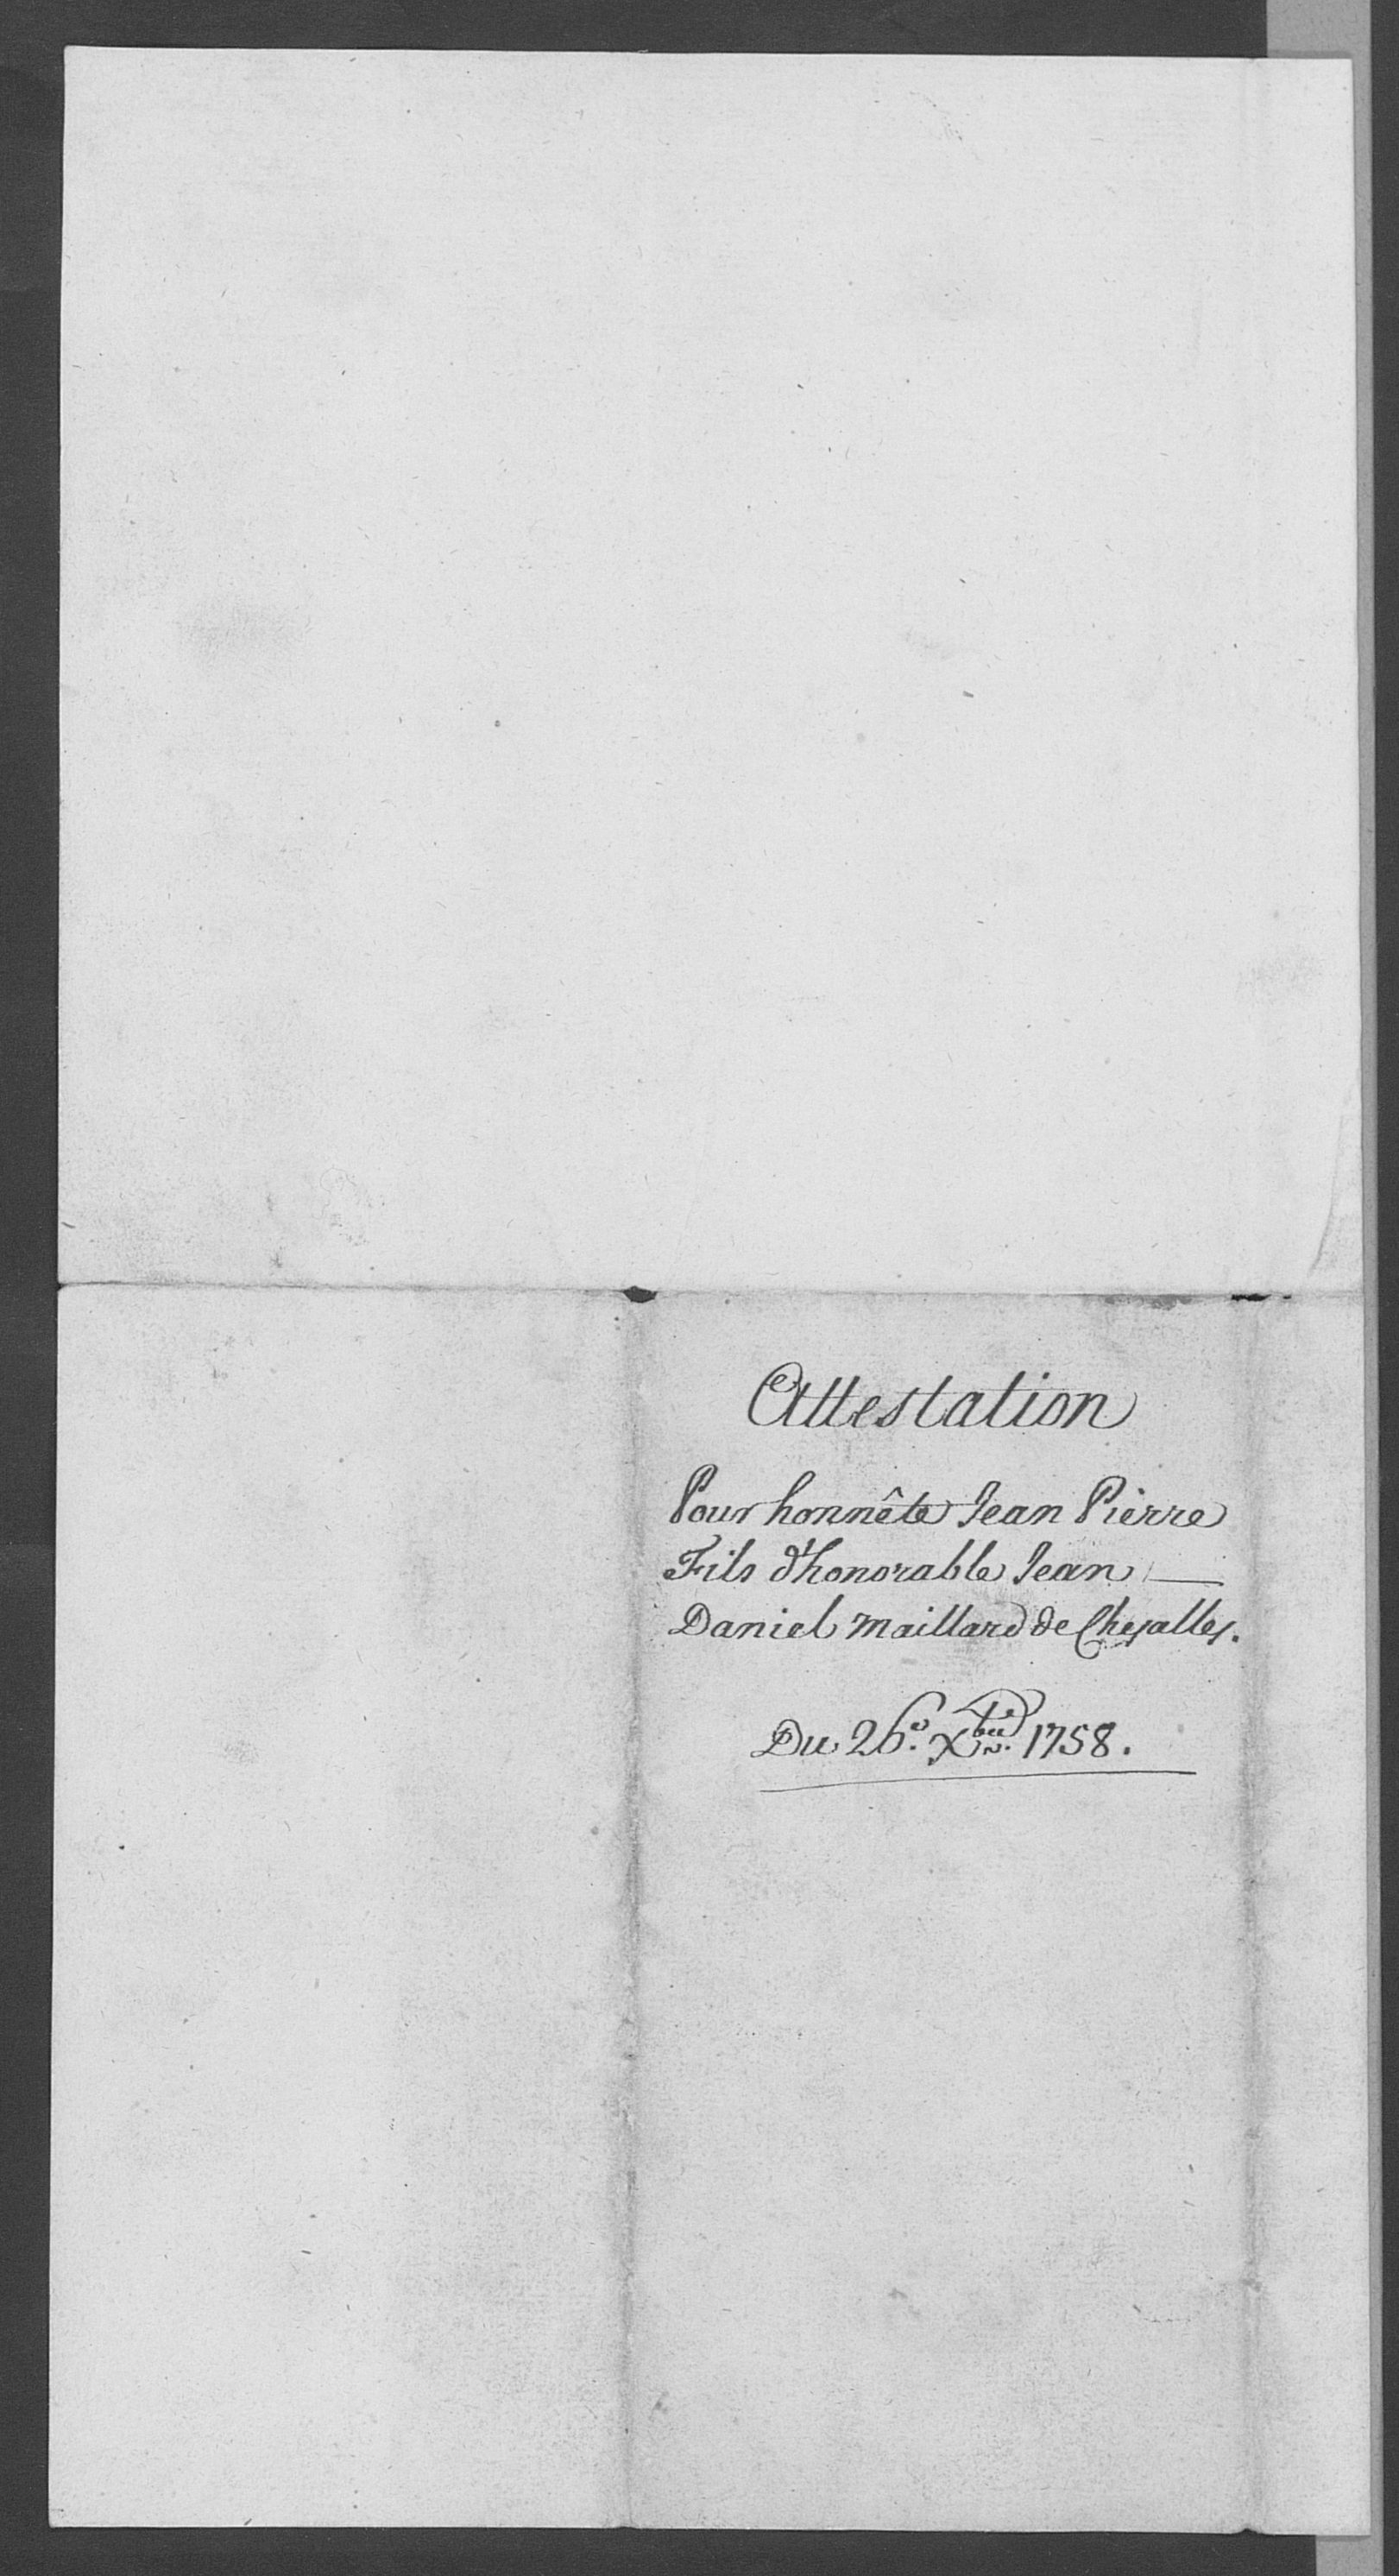 Attestation
Pour honnête Jean Pierre
Fils d'honorable Jean —
Daniel Maillard de Chesalles.
Du 26.e Xbre. 1758.